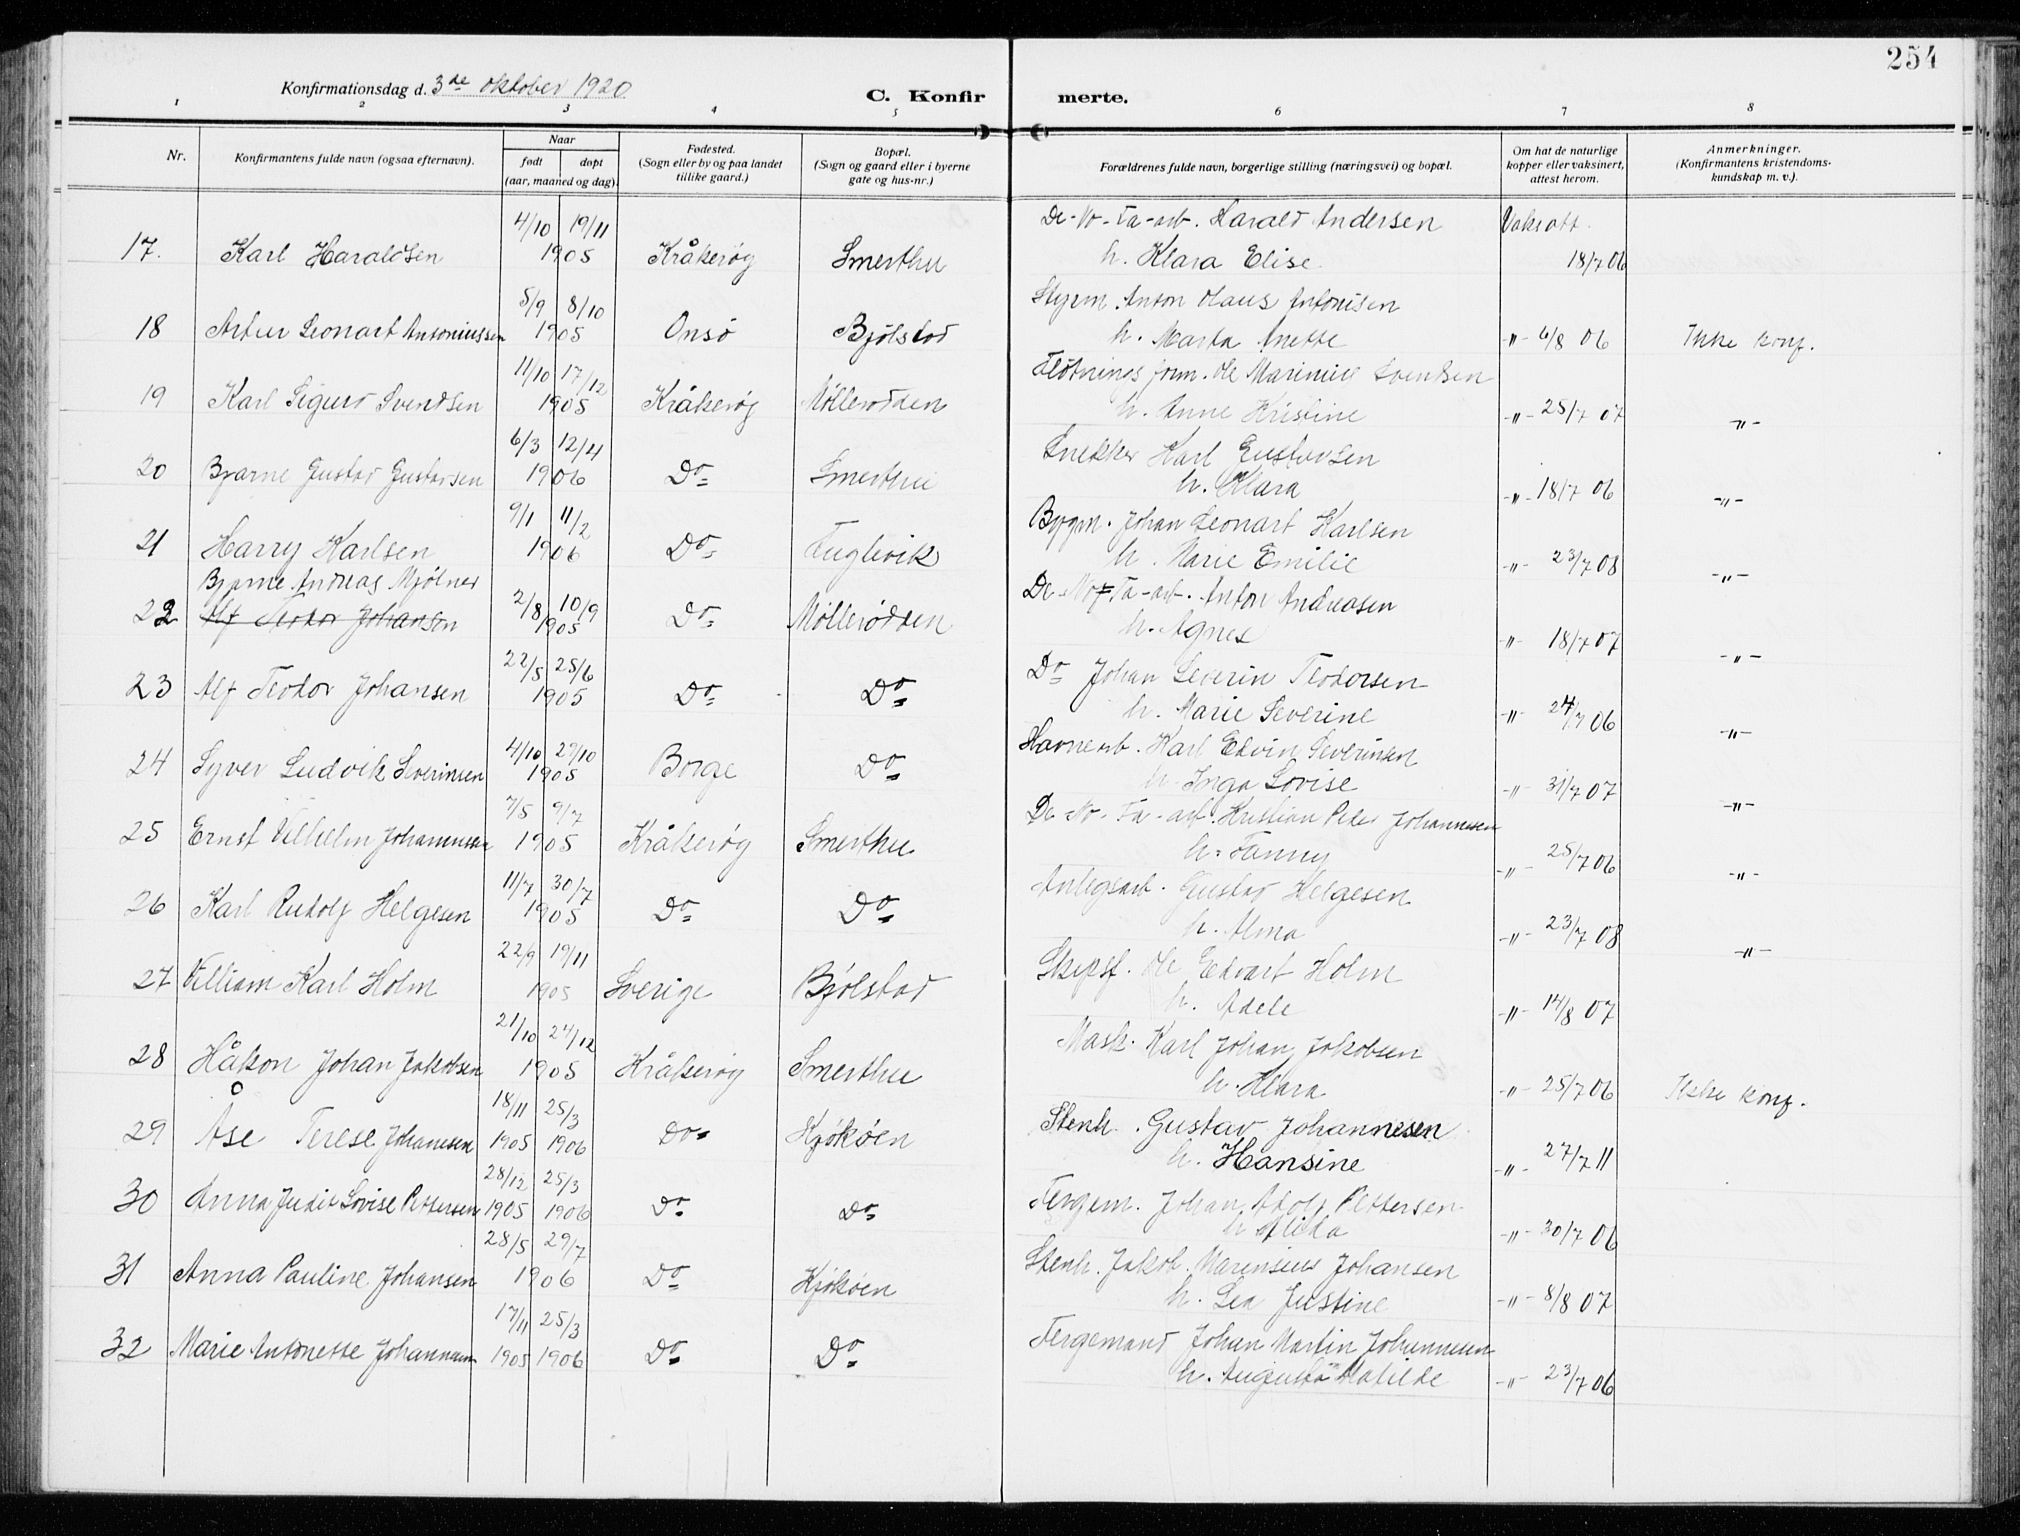 254
Konfirmationsdag d. 3de oktober 1920
C. Konfirmerte.
1 2 3 4 5 6 7 8
Nr.
Konfirmantens fulde navn (ogsaa efternavn).
Naar
født
døpt
(aar, maaned og dag).
Fødested.
(Sogn eller by og paa landet
tillike gaard.)
Bopæl.
(Sogn og gaard eller i byerne
gate og hus-nr.)
Forældrenes fulde navn, borgerlige stilling (næringsvei) og bopæl.
Om hat de naturlige
kopper eller vaksinert,
attest herom.
Anmerkninger.
(Konfirmantens kristendoms-
kundskap m. v.).
4/10 19/11 De-No-Fa-arb. Harald Andersen Vaksatt.
17. Karl Haraldsen 1905 Kråkerøg Smerthu h. Klara Elise 18/7 06
5/9 8/10 Styrm. Anton Olaus Antonisen
18 Artur Leonart Antoniussen 1905 Onsø Bjølstad h. Marta Anette -"- 6/8 06 Ikke konf.
11/10 17/12 Fløtnings form. Ole Marinius Svendsen
19 Karl Sigurd Svendsen 1905 Kråkerøg Møllerodden h. Anne Kristine -"- 25/7 07 -"-
6/3 12/4 Snekker Karl Gustavsen
20 Bjarne Gustav Gustavsen 1906 Do Smerthu h. Klara -"- 18/7 06 -"-
9/1 11/2 Bygm. Johan Leonart Karlsen
21 Harry Karlsen 1906 Do Fuglevik h. Marie Emilie -"- 23/7 08 -"-
Bjarne Andreas Mjølner 2/8 10/9 De-No-Fa-arb. Anton Andreasen
22 Alf Teodor Johansen 1905 Do Møllerødden h. Agnes -"- 18/7 07 -"-
22/5 25/6 Do Johan Severin Teodorsen
23 Alf Teodor Johansen 1905 Do Do h. Marie Severine -"- 24/7 06 -"-
4/10 29/10 Havnearb. Karl Edvin Severinsen
24 Syver Ludvik Severinsen 1905 Borge Do h. Inga Lovise -"- 31/7 07 -"-
7/5 9/7 De-No-Fa-arb. Kristian Peder Johannesen
25 Ernst Vilhelm Johannesen 1905 Kråkerøg Smerthu h. Fanny -"- 25/7 06 -"-
11/7 30/7 Anlegsarb. Gustav Helgesen
26 Karl Rudolf Helgesen 1905 Do Do h. Alma -"- 23/7 08 -"-
22/9 19/11 Skipsf. Ole Edvart Holm
27 Villiam Karl Holm 1905 Sverige Bjølstad h. Adele -"- 14/8 07
21/10 24/12 Mask. Karl Johan Jakobsen
28 Håkon Johan Jakobsen 1905 Kråkerøg Smerthu h. Klara -"- 25/7 06 Ikke konf.
18/11 25/3 Stenh. Gustav Johannesen
29 Åse Terese Johanesen 1905 1906 Do Kjøkøen h. Hansine -"- 27/7 11
28/12 25/3 Fergem. Johan Adolf Pettersen
30 Anna Judit Lovise Pettersen 1905 1906 Do Do h. Alida -"- 30/7 06
28/5 29/7 Stenh. Jakob Marensius Johansen
31 Anna Pauline Johansen 1906 Do Kjøkøen h. Lea Justine -"- 8/8 07
17/11 25/3 Fergemand Johan Martin Johannesen
32 Marie Antonette Johannesen 1905 1906 Do Do h. Augusta Matilde -"- 23/7 06